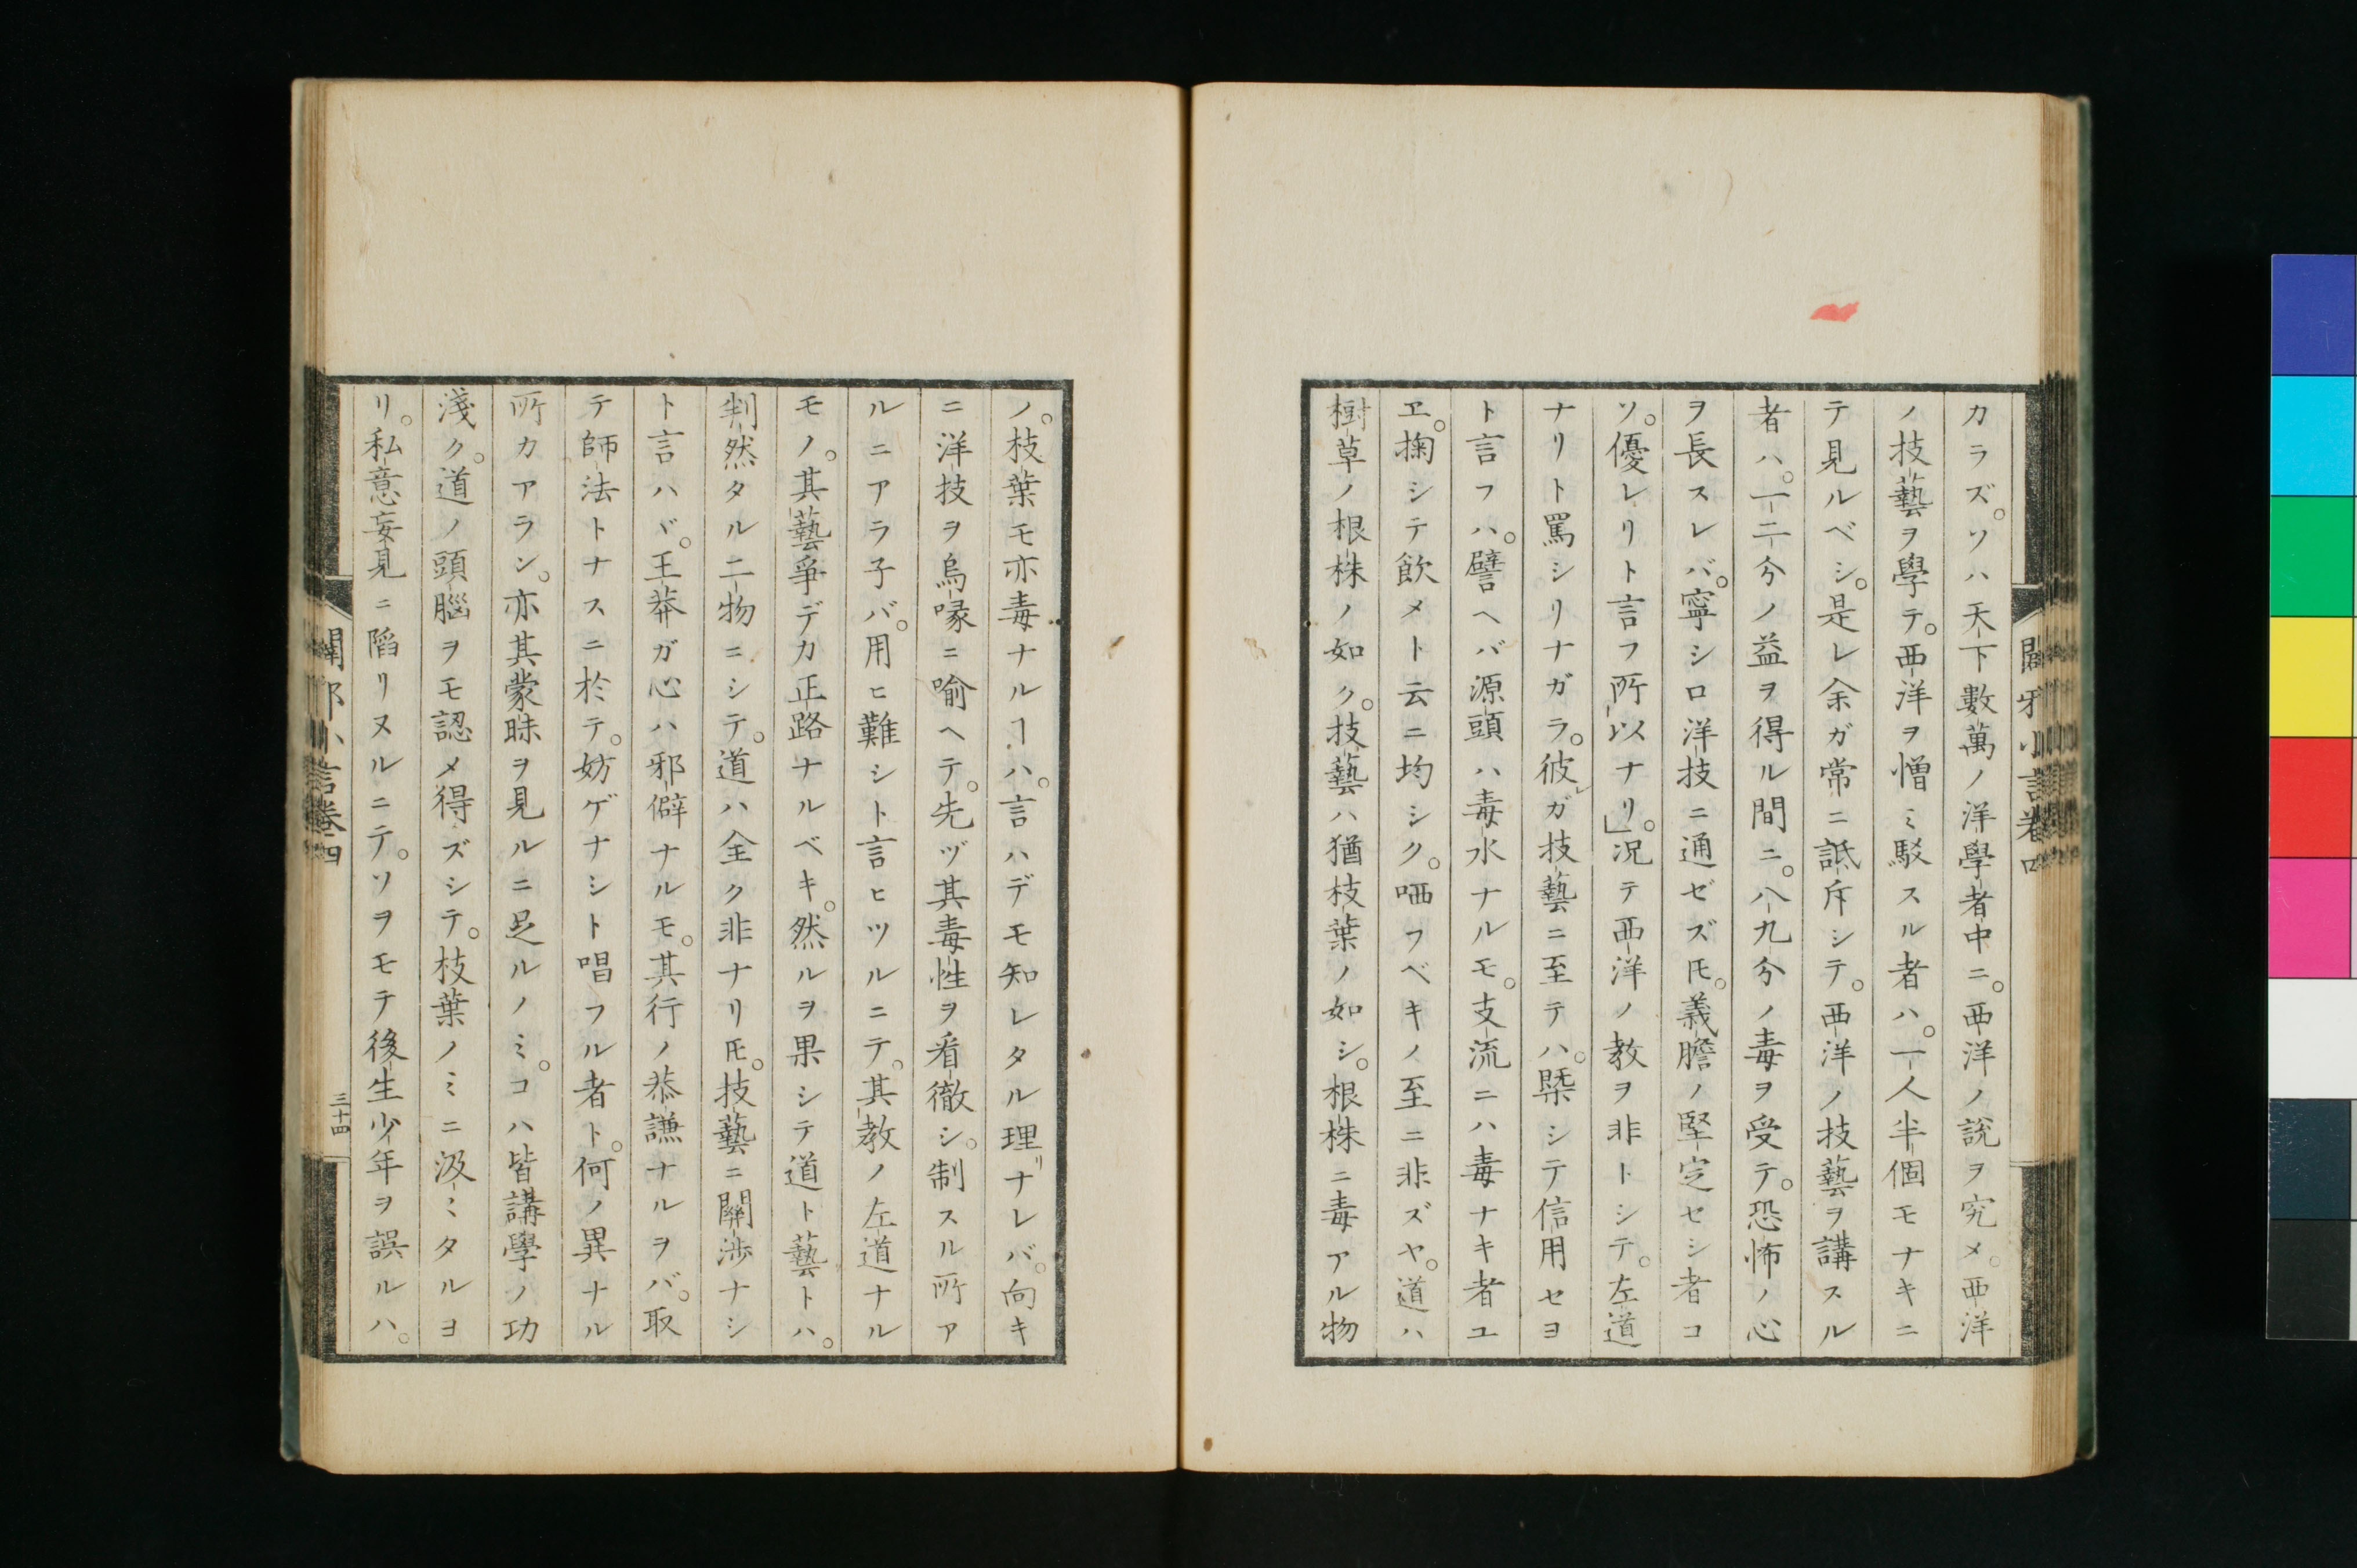 カラズ。ソハ天下數萬ノ洋學者中ニ。西洋ノ說ヲ究メ。西洋
ノ技藝ヲ學テ。西洋ヲ憎ミ駁スル者ハ。一人半個モナキニ
テ見ルベシ。是レ余ガ常ニ詆斥シテ。西洋ノ技藝ヲ講スル
者ハ。一二分ノ益ヲ得ル間ニ。八九分ノ毒ヲ受テ。恐怖ノ心
ヲ長スレバ。寧シロ洋技ニ通ゼズ𪜈。義膽ノ堅定セシ者コ
ソ。優レリト言フ所以ナリ」。況テ西洋ノ教ヲ非トシテ。左道
ナリト罵シリナガラ。彼ガ技藝ニ至テハ。槩シテ信用セヨ
ト言フハ。譬ヘバ源頭ハ毒水ナルモ。支流ニハ毒ナキ者ユ
ヱ。掬シテ飮メト云ニ均シク。哂フベキノ至ニ非ズヤ。道ハ
樹草ノ根株ノ如ク。技藝ハ猶枝葉ノ如シ。根株ニ毒アル物
闢邪小言卷四
ノ。枝葉モ亦毒ナルヿハ。言ハデモ知レタル理リナレバ。向キ
ニ洋技ヲ烏喙ニ喻ヘテ。先ヅ其毒性ヲ看徹シ。制スル所ア
ルニアラ子バ。用ヒ難シト言ヒツルニテ。其教ノ左道ナル
モノ。其藝爭デカ正路ナルベキ。然ルヲ果シテ道ト藝トハ。
判然タル二物ニシテ。道ハ全ク非ナリ𪜈。技藝ニ關渉ナシ
ト言ハヾ。王莽ガ心ハ邪僻ナルモ。其行ノ恭謙ナルヲバ。取
テ師法トナスニ於テ。妨ゲナシト唱フル者ト。何ノ異ナル
所カアラン。亦其蒙昧ヲ見ルニ足ルノミ。コハ皆講學ノ功
淺ク。道ノ頭腦ヲモ認メ得ズシテ。枝葉ノミニ汲ミタルヨ
リ。私意妄見ニ陷リヌルニテ。ソヲモテ後生少年ヲ誤ルハ。
闢邪小言卷四
三十四